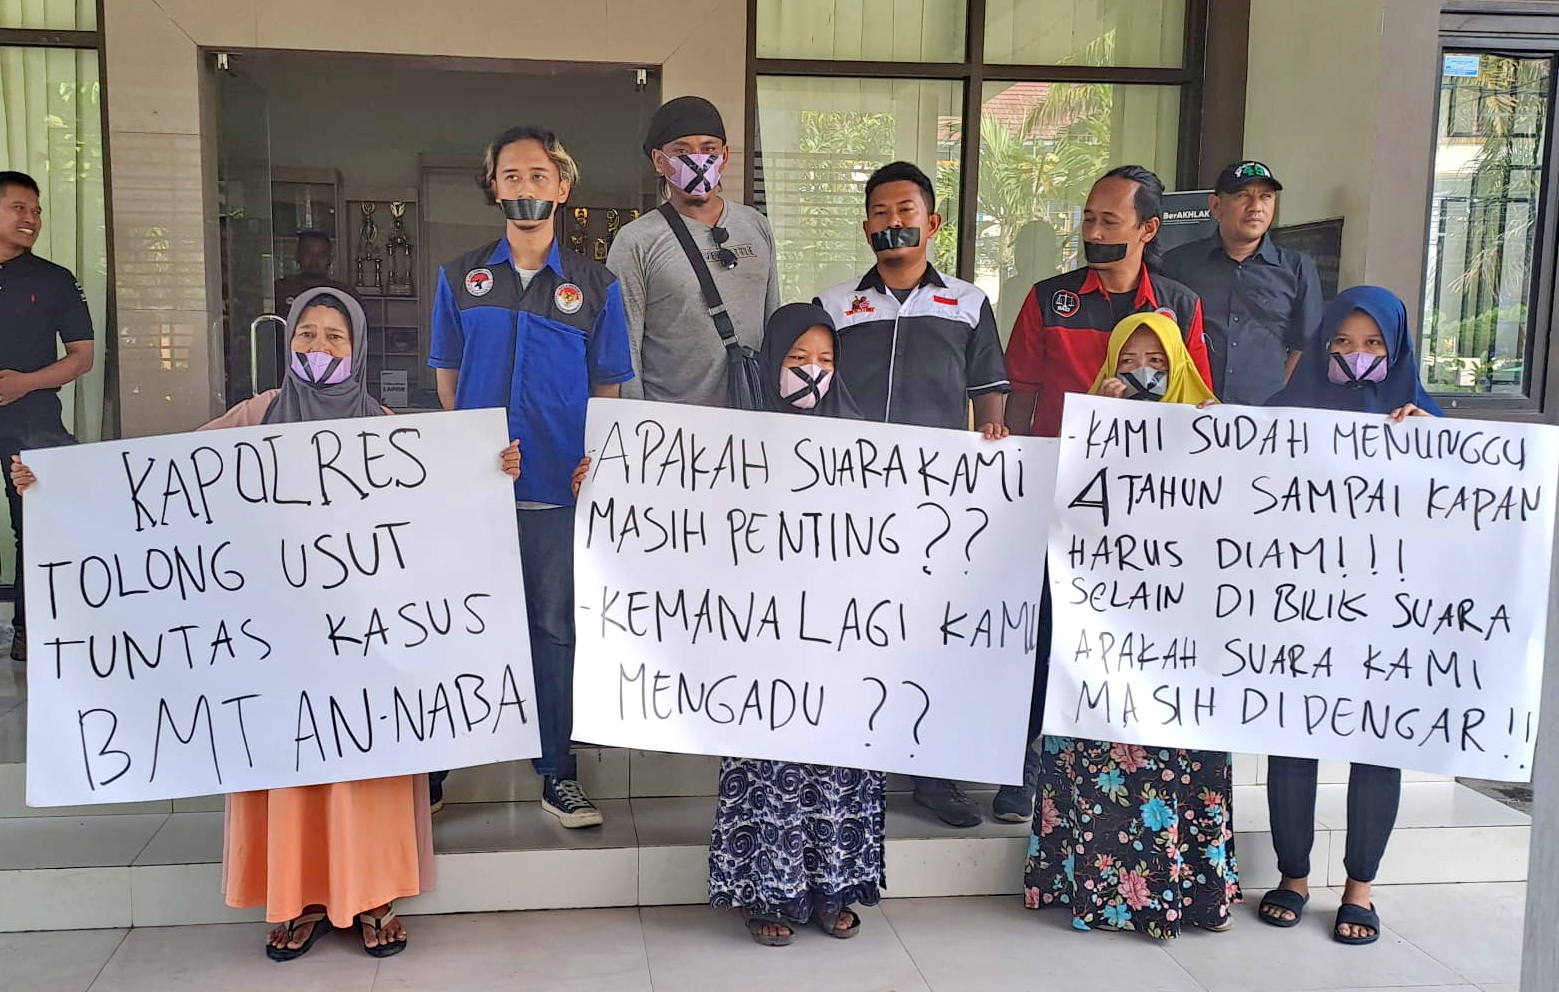 BerAKHLAK
KAPOLRES
TOLONG USUT
TUNTAS KASUS
BMT AN-NABA
-APAKAH SUARA KAMI
MASIH PENTING??
-KEMANA LAGI KAMI
MENGADU??
-KAMI SUDAH MENUNGGU
4 TAHUN SAMPAI KAPAN
HARUS DIAM!!!
-SELAIN DI BILIK SUARA
APAKAH SUARA KAMI
MASIH DI DENGAR!!